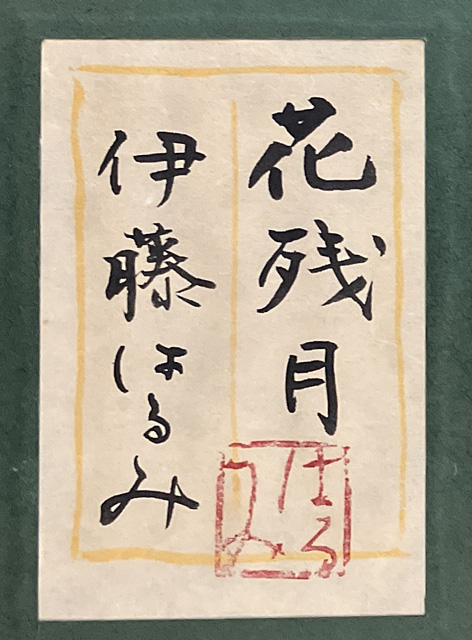 花残月
伊藤はるみ
はるみ